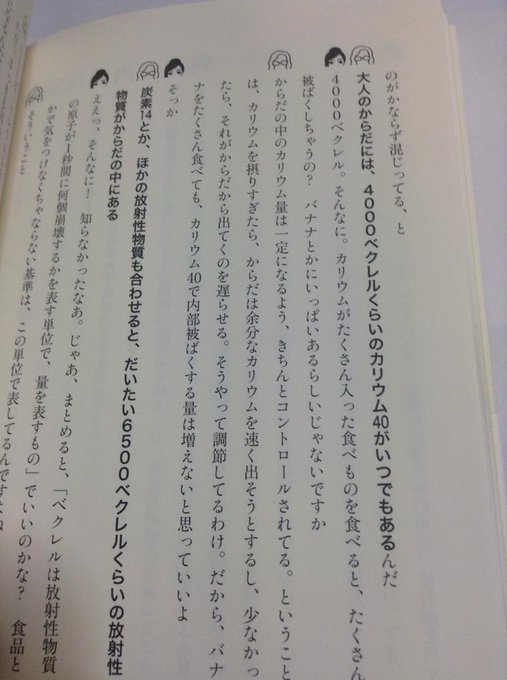 のがかならず混じってる、と
大人のからだには、4000ベクレルくらいのカリウム40がいつでもあるんだ
4000ベクレル。そんなに。カリウムがたくさん入った食べものを食べると、たくさん
被ばくしちゃうの？ バナナとかにいっぱいあるらしいじゃないですか
からだの中のカリウム量は一定になるよう、きちんとコントロールされてる。ということ
は、カリウムを摂りすぎたら、からだは余分なカリウムを速く出そうとするし、少なかっ
たら、それがからだから出てくのを遅らせる。そうやって調節してるわけ。だから、バナ
ナをたくさん食べても、カリウム40で内部被ばくする量は増えないと思っていいよ
そっか
炭素14とか、ほかの放射性物質も合わせると、だいたい6500ベクレルくらいの放射性
物質がからだの中にある
ええっ、そんなに！ 知らなかったなあ。じゃあ、まとめると、「ベクレルは放射性物質
の原子が1秒間に何個崩壊するかを表す単位で、量を表すもの」でいいのかな？ 食品と
かで気をつけなくちゃならない基準は、この単位で表してるんですよね
そういうこと